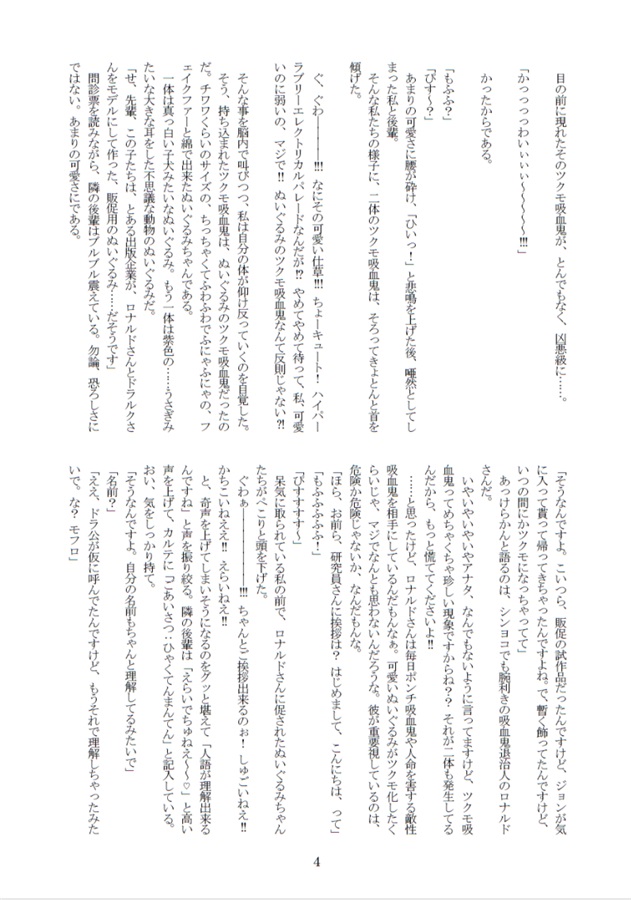 目の前に現れたそのツクモ吸血鬼が、とんでもなく、凶悪級に……。
「かっっっっわいぃぃぃ～～～～～!!!!」
かったからである。
「もふふ？」
「ぴす～？」
あまりの可愛さに腰が砕け、「ひいっ！」と悲鳴を上げた後、唖然としてし
まった私と後輩。
そんな私たちの様子に、二体のツクモ吸血鬼は、そろってきょとんと首を
傾げた。
ぐ、ぐわ―――――!!!! なにその可愛い仕草!!!! ちょーキュート！ ハイパー
ラブリーエレクトリカルパレードなんだが!? やめてやめて待って、私、可愛
いのに弱いの、マジで!! ぬいぐるみのツクモ吸血鬼なんて反則じゃない?!
そんな事を脳内で叫びつつ、私は自分の体が仰け反っていくのを自覚した。
そう、持ち込まれたツクモ吸血鬼は、ぬいぐるみのツクモ吸血鬼だったの
だ。チワワくらいのサイズの、ちっちゃくてふわふわでふにゃふにゃの、フ
ェイクファーと綿で出来たぬいぐるみちゃんである。
一体は真っ白い子犬みたいなぬいぐるみ。もう一体は紫色の……うさぎみ
たいな大きな耳をした不思議な動物のぬいぐるみだ。
「せ、先輩、この子たちは、とある出版企業が、ロナルドさんとドラルクさ
んをモデルにして作った、販促用のぬいぐるみ……だそうです」
問診票を読みながら、隣の後輩はブルブル震えている。勿論、恐ろしさに
ではない。あまりの可愛さにである。
「そうなんですよ。こいつら、販促の試作品だったんですけど、ジョンが気
に入って貰って帰ってきちゃったんですよね。で、暫く飾ってたんですけど、
いつの間にかツクモになっちゃってて」
あっけらかんと語るのは、シンヨコでも腕利きの吸血鬼退治人のロナルド
さんだ。
いやいやいやいやアナタ、なんでもないように言ってますけど、ツクモ吸
血鬼ってめちゃくちゃ珍しい現象ですからね？？ それが二体も発生してる
んだから、もっと慌ててくださいよ!!
……と思ったけど、ロナルドさんは毎日ポンチ吸血鬼や人命を害する敵性
吸血鬼を相手にしているんだもんなぁ。可愛いぬいぐるみがツクモ化したく
らいじゃ、マジでなんとも思わないんだろうな。彼が重要視しているのは、
危険か危険じゃないか、なんだもんな。
「ほら、お前ら、研究員さんに挨拶は？ はじめまして、こんにちは、って」
「もふふふふふ！」
「ぴすすすす～」
呆気に取られている私の前で、ロナルドさんに促されたぬいぐるみちゃん
たちがぺこりと頭を下げた。
ぐわぁ―――――!!!! ちゃんとご挨拶出来るのぉ！ しゅごいねえ!!
かちこいねえ!! えらいねえ!!
と、奇声を上げてしまいそうになるのをグッと堪えて「人語が理解出来る
んですね」と声を振り絞る。隣の後輩は「えらいでちゅねえ～～♡」と高い
声を上げて、カルテに「ごあいさつ：ひゃくてんまんてん」と記入している。
おい、気をしっかり持て。
「そうなんですよ。自分の名前もちゃんと理解してるみたいで」
「名前？」
「ええ、ドラ公が仮に呼んでたんですけど、もうそれで理解しちゃったみた
いで。な？ モフロ」
4